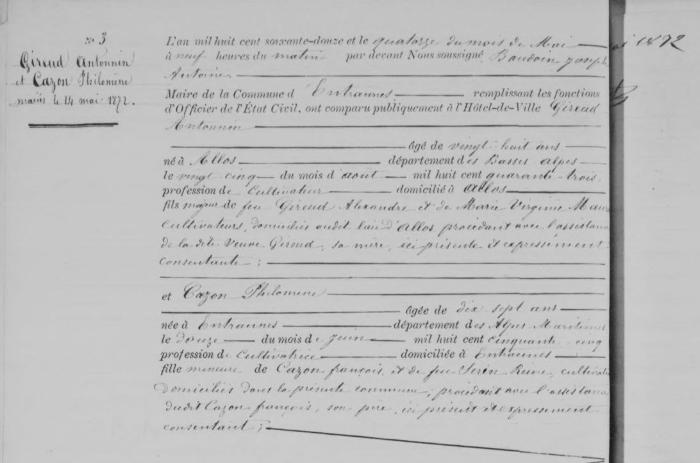 N° 3
Giroud Antonnin
et Cazon Philomène
mariés le 14 mai 1872.
L'an mil huit cent soixante-douze et le quatorze du mois de Mai
à neuf heures du matin par devant Nous soussigné Baudoin Joseph
Antoine
Maire de la Commune d'Entraunes remplissant les fonctions
d'Officier de l'État Civil, ont comparu publiquement à l'Hôtel-de-Ville Giroud
Antonnin
âgé de vingt huit ans
né à Allos département des Basses Alpes
le vingt cinq du mois d'août mil huit cent quarante-trois
profession de Cultivateur domicilié à Allos
fils majeur de feu Giroud Alexandre et de Marie Virginie
Cultivateurs, domiciliés audit lieu d'Allos, procédant avec l'assistance
de la dite Veuve Giroud, sa mère, ici présente et expressément
consentante ;
et Cazon Philomène
âgée de dix sept ans
née à Entraunes département des Alpes Maritimes
le douze du mois de Juin mil huit cent cinquante-cinq
profession de Cultivatrice domiciliée à Entraunes
fille mineure de Cazon françois, et de feu Serin Reine, cultivateurs
domiciliés dans la présente commune, procédant avec l'assistance
dudit Cazon françois, son père, ici présent et expressément
consentant ;